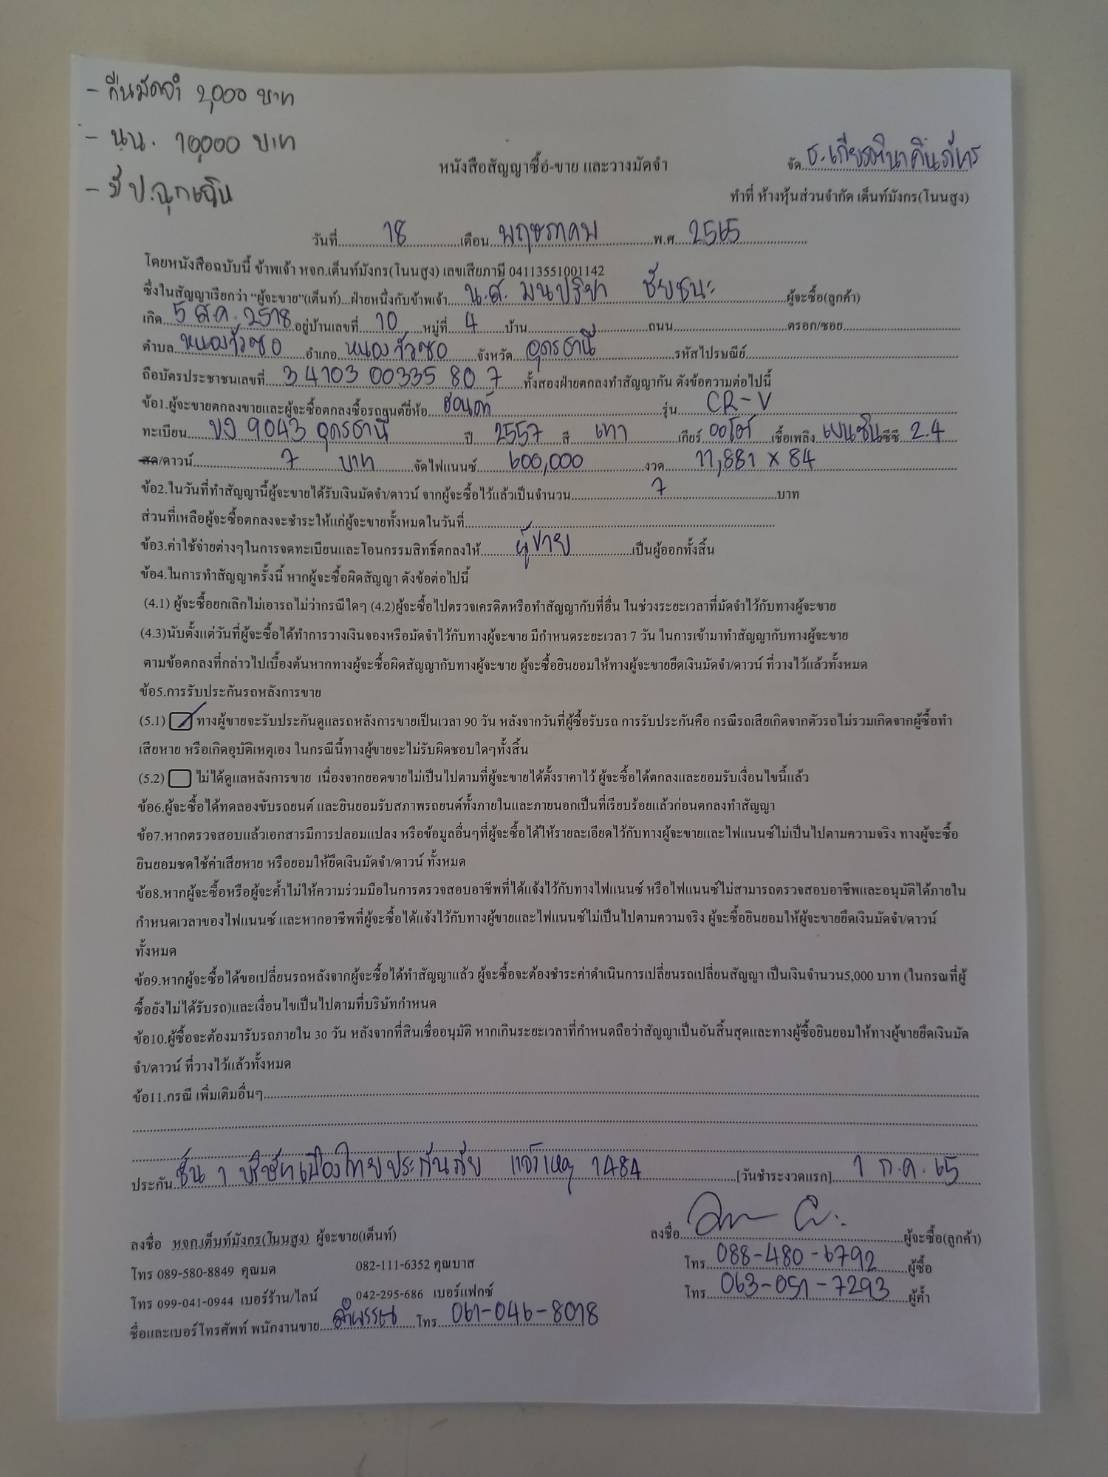 - คืนมัดจำ 2,000 บาท
- นน. 10,000 บาท
- มี ป.ฉุกเฉิน
หนังสือสัญญาซื้อ-ขาย และวางมัดจำ
จัด ธ.เกียรตินาคินภัทร
ทำที่ ห้างหุ้นส่วนจำกัด เต็นท์มังกร(โนนสูง)
วันที่ 18 เดือน พฤษภาคม พ.ศ. 2565
โดยหนังสือฉบับนี้ ข้าพเจ้า หจก.เต็นท์มังกร(โนนสูง) เลขเสียภาษี 04113551001142
ซึ่งในสัญญาเรียกว่า "ผู้จะขาย"(เต็นท์)...ฝ่ายหนึ่งกับข้าพเจ้า น.ส. มนปริยา ชัยชนะ ผู้จะซื้อ(ลูกค้า)
เกิด 5 ส.ค. 2518 อยู่บ้านเลขที่ 10 หมู่ที่ 4 บ้าน ถนน ตรอก/ซอย
ตำบล หนองวัวซอ อำเภอ หนองวัวซอ จังหวัด อุดรธานี รหัสไปรษณีย์
ถือบัตรประชาชนเลขที่ 3 4103 00335 80 7 ทั้งสองฝ่ายตกลงทำสัญญากัน ดังข้อความต่อไปนี้
ข้อ1.ผู้จะขายตกลงขายและผู้จะซื้อตกลงซื้อรถยนต์ยี่ห้อ ฮอนด้า รุ่น CR-V
ทะเบียน ขง 9043 อุดรธานี ปี 2557 สี เทา เกียร์ ออโต้ เชื้อเพลิง เบนซิน ซีซี 2.4
สด/ดาวน์ 7 บาท จัดไฟแนนซ์ 600,000 งวด 11,881 x 84
ข้อ2.ในวันที่ทำสัญญานี้ผู้จะขายได้รับเงินมัดจำ/ดาวน์ จากผู้จะซื้อไว้แล้วเป็นจำนวน 7 บาท
ส่วนที่เหลือผู้จะซื้อตกลงจะชำระให้แก่ผู้จะขายทั้งหมดในวันที่
ข้อ3.ค่าใช้จ่ายต่างๆในการจดทะเบียนและโอนกรรมสิทธิ์ตกลงให้ ผู้ขาย เป็นผู้ออกทั้งสิ้น
ข้อ4.ในการทำสัญญาครั้งนี้ หากผู้จะซื้อผิดสัญญา ดังข้อต่อไปนี้
(4.1) ผู้จะซื้อยกเลิกไม่เอารถไม่ว่ากรณีใดๆ (4.2)ผู้จะซื้อไปตรวจเครดิตหรือทำสัญญากับที่อื่น ในช่วงระยะเวลาที่มัดจำไว้กับทางผู้จะขาย
(4.3)นับตั้งแต่วันที่ผู้จะซื้อได้ทำการวางเงินจองหรือมัดจำไว้กับทางผู้จะขาย มีกำหนดระยะเวลา 7 วัน ในการเข้ามาทำสัญญากับทางผู้จะขาย
ตามข้อตกลงที่กล่าวไปเบื้องต้นหากทางผู้จะซื้อผิดสัญญากับทางผู้จะขาย ผู้จะซื้อยินยอมให้ทางผู้จะขายยึดเงินมัดจำ/ดาวน์ ที่วางไว้แล้วทั้งหมด
ข้อ5.การรับประกันรถหลังการขาย
(5.1) ทางผู้ขายจะรับประกันดูแลรถหลังการขายเป็นเวลา 90 วัน หลังจากวันที่ผู้ซื้อรับรถ การรับประกันคือ กรณีรถเสียเกิดจากตัวรถไม่รวมเกิดจากผู้ซื้อทำ
เสียหาย หรือเกิดอุบัติเหตุเอง ในกรณีนี้ทางผู้ขายจะไม่รับผิดชอบใดๆทั้งสิ้น
(5.2) ไม่ได้ดูแลหลังการขาย เนื่องจากยอดขายไม่เป็นไปตามที่ผู้จะขายได้ตั้งราคาไว้ ผู้จะซื้อได้ตกลงและยอมรับเงื่อนไขนี้แล้ว
ข้อ6.ผู้จะซื้อได้ทดลองขับรถยนต์ และยินยอมรับสภาพรถยนต์ทั้งภายในและภายนอกเป็นที่เรียบร้อยแล้วก่อนตกลงทำสัญญา
ข้อ7.หากตรวจสอบแล้วเอกสารมีการปลอมแปลง หรือข้อมูลอื่นๆที่ผู้จะซื้อได้ให้รายละเอียดไว้กับทางผู้จะขายและไฟแนนซ์ไม่เป็นไปตามความจริง ทางผู้จะซื้อ
ยินยอมชดใช้ค่าเสียหาย หรือยอมให้ยึดเงินมัดจำ/ดาวน์ ทั้งหมด
ข้อ8.หากผู้จะซื้อหรือผู้จะค้ำไม่ให้ความร่วมมือในการตรวจสอบอาชีพที่ได้แจ้งไว้กับทางไฟแนนซ์ หรือไฟแนนซ์ไม่สามารถตรวจสอบอาชีพและอนุมัติได้ภายใน
กำหนดเวลาของไฟแนนซ์ และหากอาชีพที่ผู้จะซื้อได้แจ้งไว้กับทางผู้ขายและไฟแนนซ์ไม่เป็นไปตามความจริง ผู้จะซื้อยินยอมให้ผู้จะขายยึดเงินมัดจำ/ดาวน์
ทั้งหมด
ข้อ9.หากผู้จะซื้อได้ขอเปลี่ยนรถหลังจากผู้จะซื้อได้ทำสัญญาแล้ว ผู้จะซื้อจะต้องชำระค่าดำเนินการเปลี่ยนรถเปลี่ยนสัญญา เป็นเงินจำนวน5,000 บาท (ในกรณที่ผู้
ซื้อยังไม่ได้รับรถ)และเงื่อนไขเป็นไปตามที่บริษัทกำหนด
ข้อ10.ผู้ซื้อจะต้องมารับรถภายใน 30 วัน หลังจากที่สินเชื่ออนุมัติ หากเกินระยะเวลาที่กำหนดถือว่าสัญญาเป็นอันสิ้นสุดและทางผู้ซื้อยินยอมให้ทางผู้ขายยึดเงินมัด
จำ/ดาวน์ ที่วางไว้แล้วทั้งหมด
ข้อ11.กรณี เพิ่มเติมอื่นๆ
ประกัน ชั้น 1 บริษัท เมืองไทยประกันภัย แจ้งเหตุ 1484 [วันชำระงวดแรก] 1 ก.ค. 65
ลงชื่อ หจก.เต็นท์มังกร(โนนสูง) ผู้จะขาย(เต็นท์)
ลงชื่อ ผู้จะซื้อ(ลูกค้า)
โทร 089-580-8849 คุณมด 082-111-6352 คุณบาส
โทร 088-480-6792 ผู้ซื้อ
โทร 099-041-0944 เบอร์ร้าน/ไลน์ 042-295-686 เบอร์แฟกซ์
โทร 063-051-7293 ผู้ค้ำ
ชื่อและเบอร์โทรศัพท์ พนักงานขาย โทร 061-046-8018